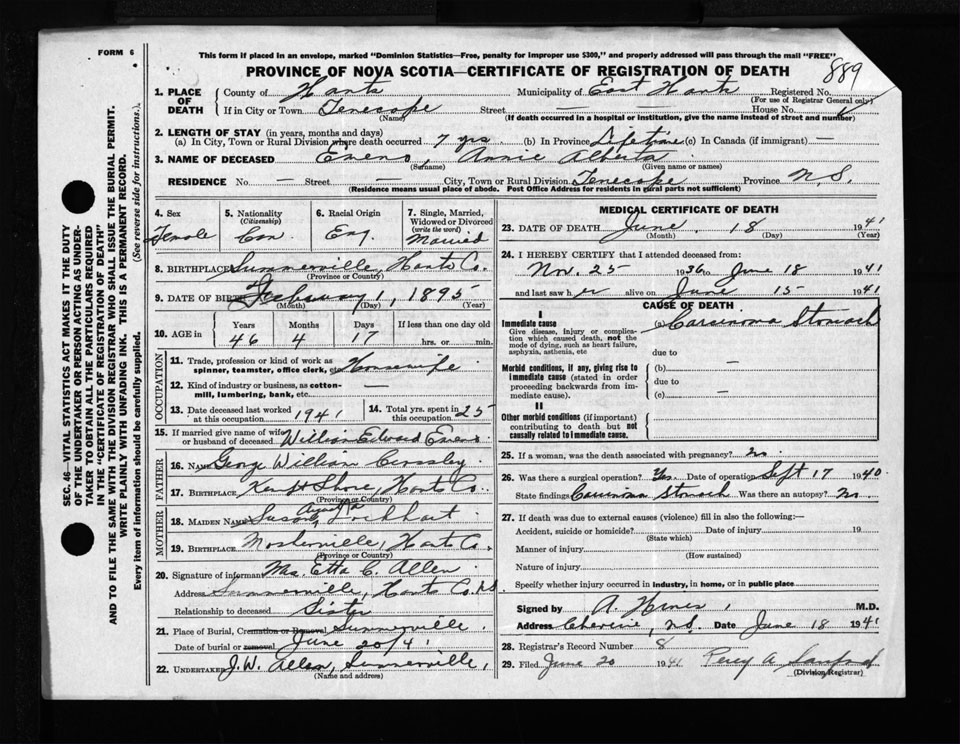 FORM 6
This form if placed in an envelope, marked "Dominion Statistics—Free, penalty for improper use $300," and properly addressed will pass through the mail "FREE"
889
PROVINCE OF NOVA SCOTIA—CERTIFICATE OF REGISTRATION OF DEATH
SEC. 46—VITAL STATISTICS ACT MAKES IT THE DUTY
OF THE UNDERTAKER OR PERSON ACTING AS UNDER-
TAKER TO OBTAIN ALL THE PARTICULARS REQUIRED
IN THE "CERTIFICATE OF REGISTRATION OF DEATH"
AND TO FILE THE SAME WITH THE DIVISION REGISTRAR WHO SHALL ISSUE THE BURIAL PERMIT.
WRITE PLAINLY WITH UNFADING INK. THIS IS A PERMANENT RECORD.
Every item of information should be carefully supplied. (See reverse side for instructions.)
1. PLACE OF DEATH County of Hants Municipality of East Hants Registered No.
(For use of Registrar General only)
If in City or Town Tenecape Street — — House No.
(Name) (If death occurred in a hospital or institution, give the name instead of street and number)
2. LENGTH OF STAY (in years, months and days)
(a) In City, Town or Rural Division where death occurred 7 yrs. (b) In Province Lifetime (c) In Canada (if immigrant) —
3. NAME OF DECEASED Annie Alberta
(Surname) (Given name or names)
RESIDENCE No. — Street City, Town or Rural Division Tenecape Province N.S.
(Residence means usual place of abode. Post Office Address for residents in rural parts not sufficient)
4. Sex Female
5. Nationality (Citizenship) Can
6. Racial Origin Eng
7. Single, Married, Widowed or Divorced (write the word) Married
8. BIRTHPLACE Summerville, Hants Co.
(Province or Country)
9. DATE OF BIRTH February 1, 1895
(Month) (Day) (Year)
10. AGE in Years 46 Months 4 Days 17 If less than one day old hrs. or min.
OCCUPATION
11. Trade, profession or kind of work as spinner, teamster, office clerk, etc. Housewife
12. Kind of industry or business, as cotton-mill, lumbering, bank, etc. —
13. Date deceased last worked at this occupation 1941
14. Total yrs. spent in this occupation 25
15. If married give name of wife or husband of deceased William Edward
FATHER
16. NAME George William Crossby
17. BIRTHPLACE Kempt Shore, Hants Co.
(Province or Country)
MOTHER
18. MAIDEN NAME Susan Augusta Lockhart
19. BIRTHPLACE Mosherville, Hants Co.
(Province or Country)
20. Signature of informant Mrs. Etta C. Allen
Address Summerville, Hants Co. N.S.
Relationship to deceased Sister
21. Place of Burial, Cremation or Removal Summerville
Date of burial or removal June 20/41
22. UNDERTAKER J.W. Allen, Summerville,
(Name and address)
MEDICAL CERTIFICATE OF DEATH
23. DATE OF DEATH June 18 1941
(Month) (Day) (Year)
24. I HEREBY CERTIFY that I attended deceased from:
Nov. 25 1936 to June 18 1941
and last saw her alive on June 15 1941
CAUSE OF DEATH
I
Immediate cause Carcinoma Stomach
Give disease, injury or complication which caused death, not the mode of dying, such as heart failure, asphyxia, asthenia, etc
due to
Morbid conditions, if any, giving rise to immediate cause (stated in order proceeding backwards from immediate cause).
(b) —
due to
(c) —
II
Other morbid conditions (if important) contributing to death but not causally related to immediate cause.
25. If a woman, was the death associated with pregnancy? no
26. Was there a surgical operation? Yes Date of operation Sept 17 1940
State findings Carcinoma Stomach Was there an autopsy? no.
27. If death was due to external causes (violence) fill in also the following:—
Accident, suicide or homicide? Date of injury 19
(State which)
Manner of injury
(How sustained)
Nature of injury
Specify whether injury occurred in industry, in home, or in public place
Signed by A. M.D.
Address Cheverie, N.S. Date June 18 1941
28. Registrar's Record Number 8
29. Filed June 20 1941 Percy A. Sanford
(Division Registrar)